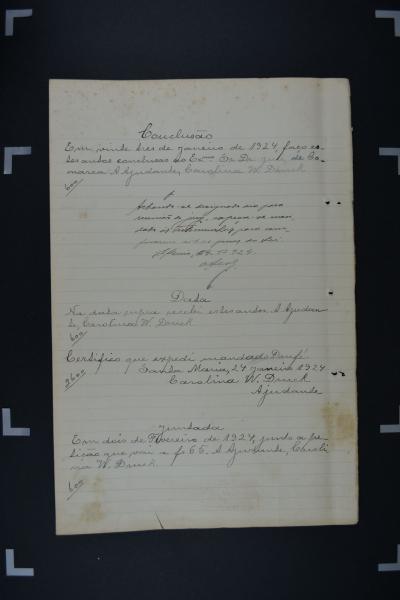 Conclusão
Em vinte tres de janeiro de 1924, faço es-
tes autos conclusos ao Exmo Sr. Dr. Juiz de Co-
marca. A Ajudante, Carolina W. Druck
600
designado dia para
do jury,
para com-
S. Maria, 1924.
Data
Na data supra recebi estes autos. A Ajudan-
te, Carolina W. Druck
600
Certifico que expedi mandado. Dou fé.
Santa Maria, 24 janeiro 1924
Carolina W. Druck
Ajudante
2600
Juntada
Em dois de Fevereiro de 1924, junto a pe-
tição que vai a fs 65. A Ajudante, Caroli-
na W. Druck.
600